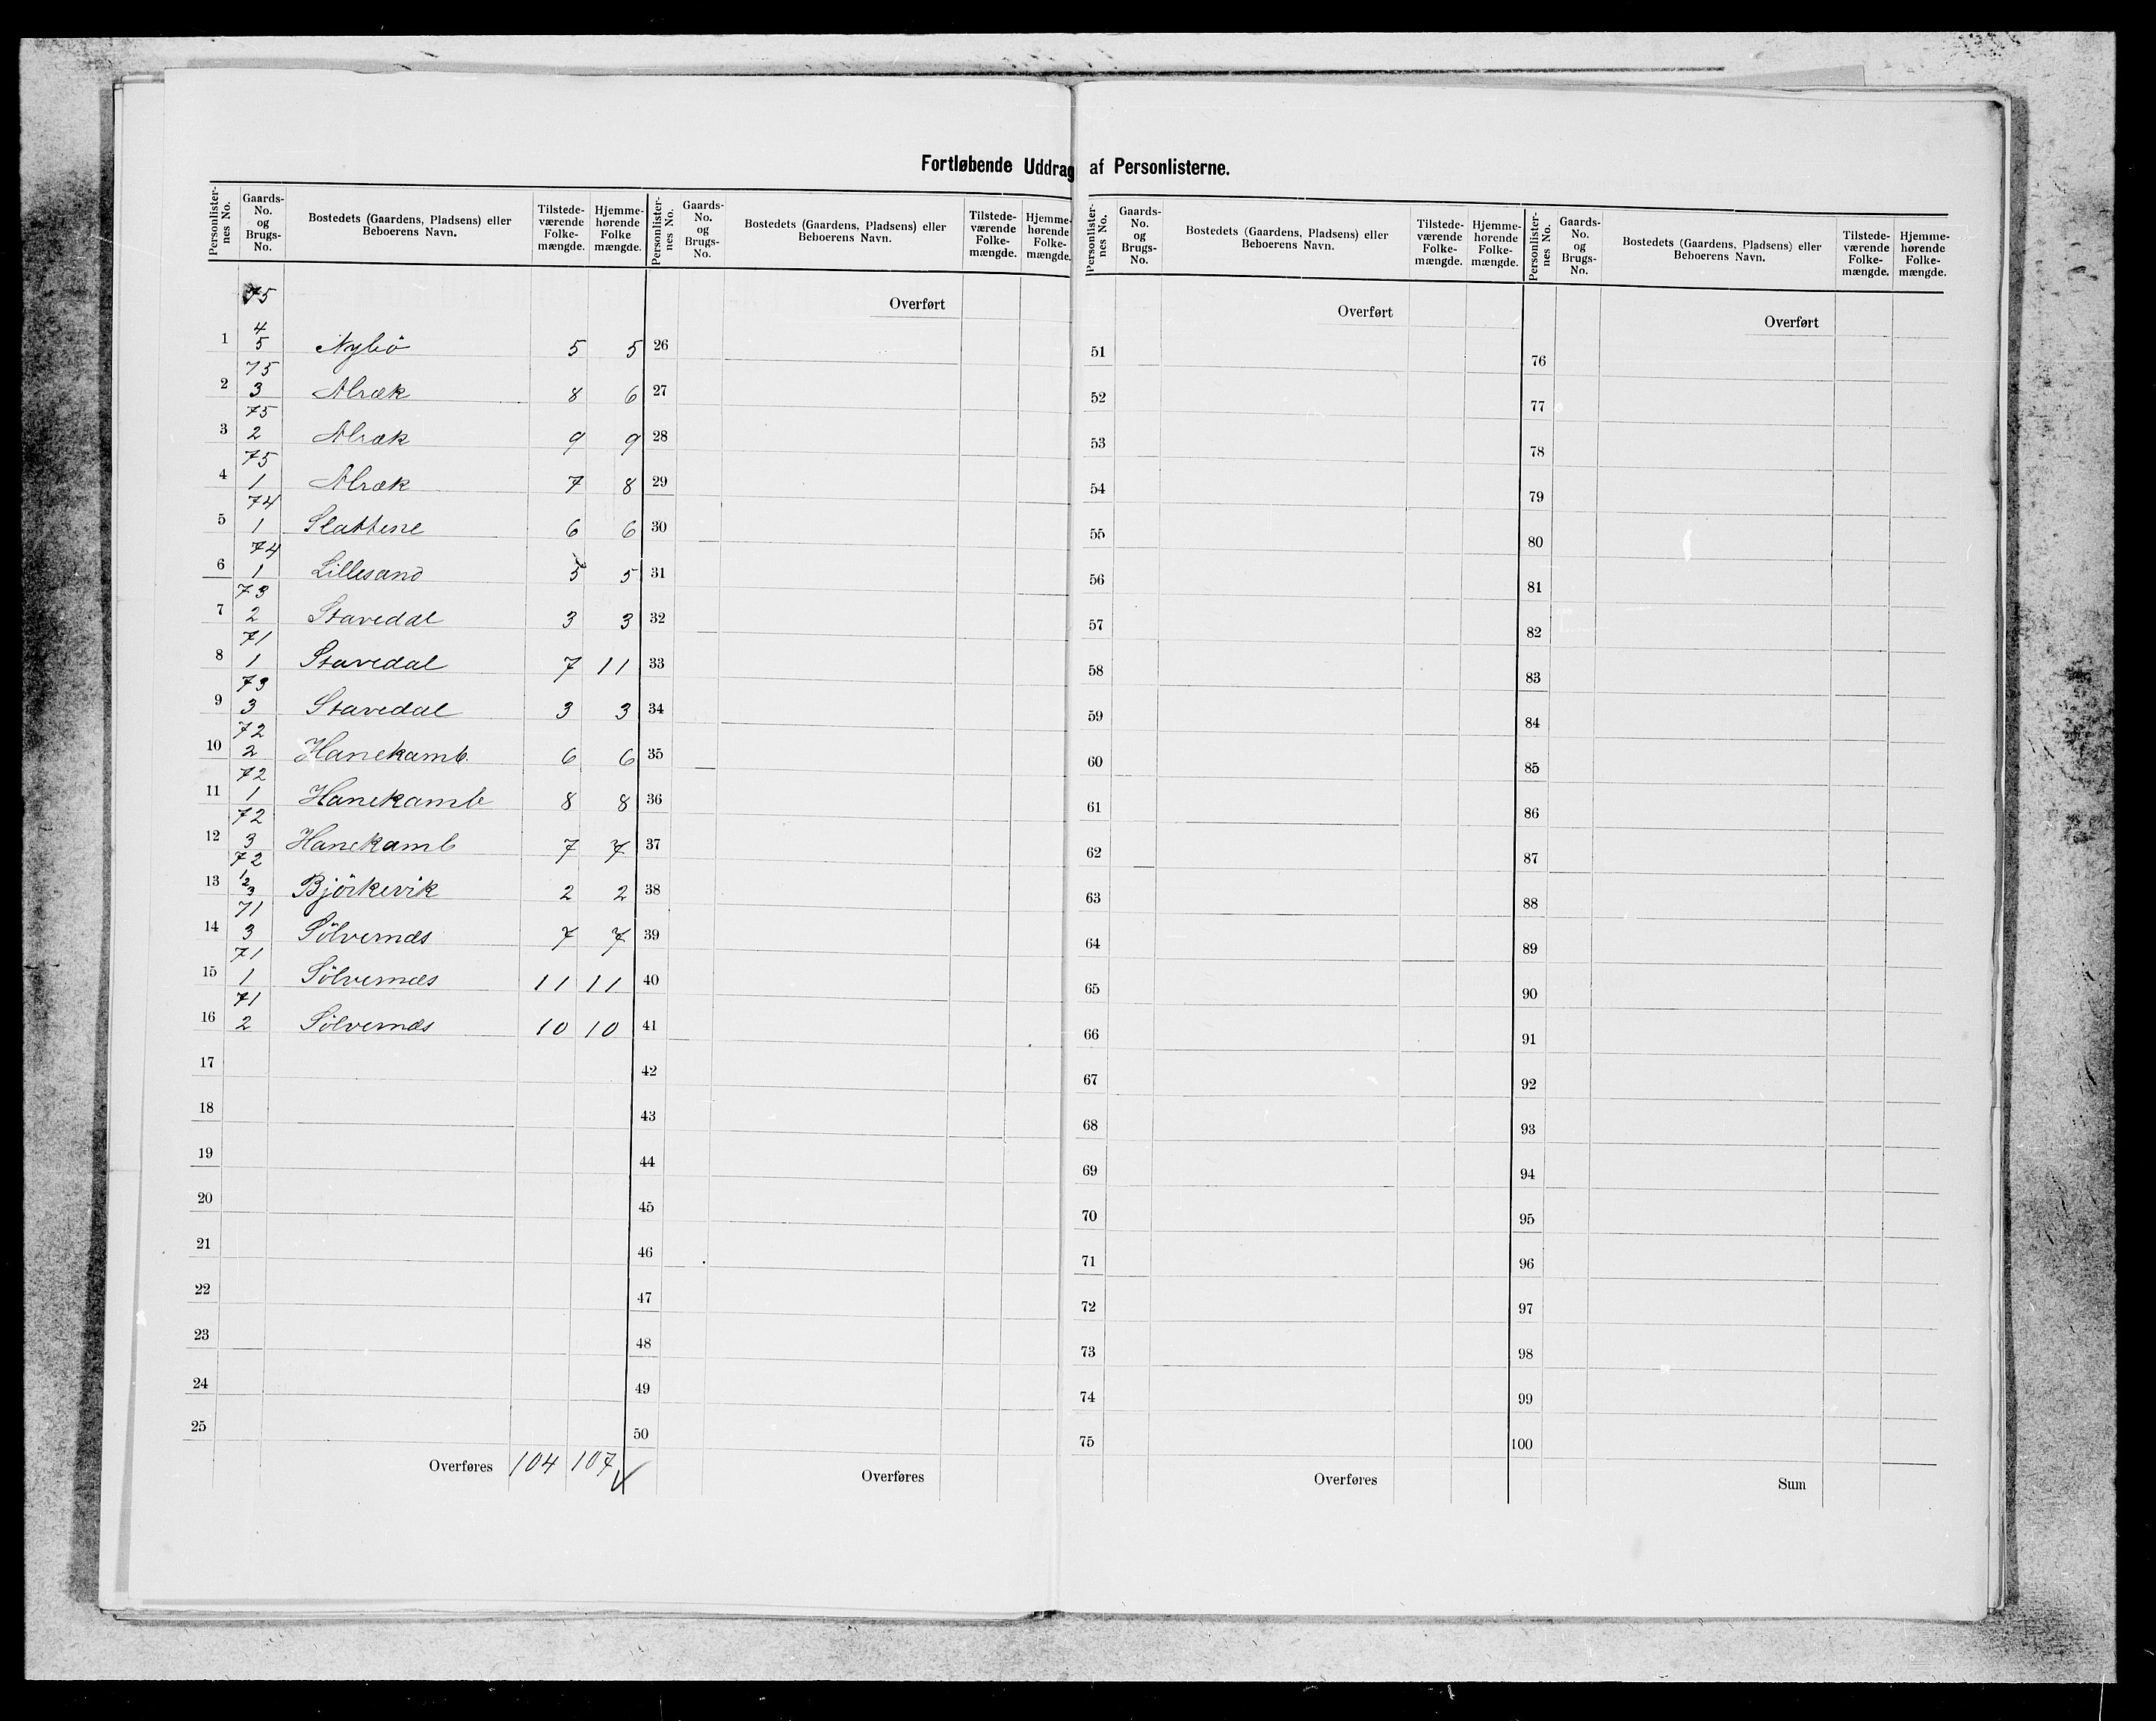 Fortløbende Uddrag af Personlisterne.
Personlister-nes No. Gaards-No. og Brugs-No. Bostedets (Gaardens, Pladsens) eller Beboerens Navn. Tilstede-værende Folke-mængde. Hjemme-hørende Folke mængde.
Personlister-nes No. Gaards-No. og Brugs-No. Bostedets (Gaardens, Pladsens) eller Beboerens Navn. Tilstede-værende Folke-mængde. Hjemme-hørende Folke-mængde.
Personlister-nes No. Gaards-No. og Brugs-No. Bostedets (Gaardens, Pladsens) eller Beboerens Navn. Tilstede-værende Folke-mængde. Hjemme-hørende Folke-mængde.
Personlister-nes No. Gaards-No. og Brugs-No. Bostedets (Gaardens, Pladsens) eller Beboerens Navn. Tilstede-værende Folke-mængde. Hjemme-hørende Folke-mængde.
75
4
1 5 Nybö 5 5
75
2 3 Alræk 8 6
75
3 2 Alræk 9 9
75
4 1 Alræk 7 8
74
5 1 Slattene 6 6
74
6 1 Lillesand 5 5
73
7 2 Stavedal 3 3
71
8 1 Stavedal 7 11
73
9 3 Stavedal 3 3
72
10 2 Hanekamb 6 6
72
11 1 Hanekamb 8 8
72
12 3 Hanekamb 7 7
72
1
2
13 3 Björkevik 2 2
71
14 3 Sölvernæs 7 7
71
15 1 Sölvernæs 11 11
71
16 2 Sölvernæs 10 10
17
18
19
20
21
22
23
24
25
Overføres 104 107
Overført
26
27
28
29
30
31
32
33
34
35
36
37
38
39
40
41
42
43
44
45
46
47
48
49
50
Overføres
Overført
51
52
53
54
55
56
57
58
59
60
61
62
63
64
65
66
67
68
69
70
71
72
73
74
75
Overføres
Overført
76
77
78
79
80
81
82
83
84
85
86
87
88
89
90
91
92
93
94
95
96
97
98
99
100
Sum